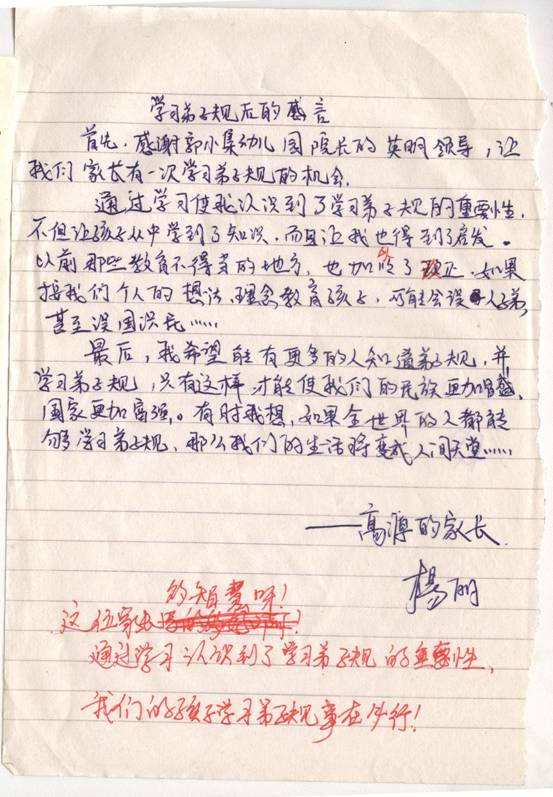 学习弟子规后的感言
首先,感谢郭小集幼儿园院长的英明领导,让
我们家长有一次学习弟子规的机会.
通过学习使我认识到了学习弟子规的重要性.
不但让孩子从中学到了知识.而且让我也得到了启发。
以前那些教育不得当的地方,也加以了改正.如果
按我们个人的想法.理念教育孩子,可能会误人子弟.
甚至误国误民……
最后,我希望能有更多的人知道弟子规,并
学习弟子规,只有这样才能使我们的民族更加昌盛,
国家更加富强。有时我想,如果全世界的人都能
够学习弟子规,那么我们的生活将变成人间天堂……
——高源的家长
杨丽
够智慧呀!
这位家长
通过学习认识到了学习弟子规的重要性,
我们的孩子学习弟子规事在必行!